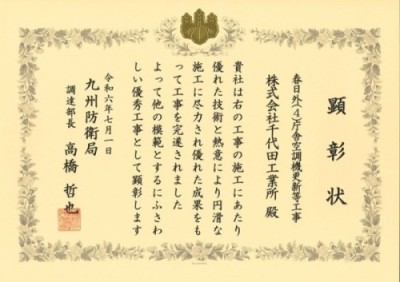 顕彰状
春日外(4)庁舎空調機更新等工事
株式会社千代田工業所 殿
貴社は右の工事の施工にあたり
優れた技術と熱意により円滑な
施工に尽力され優れた成果をも
って工事を完遂されました
よって他の模範とするにふさわ
しい優秀工事として顕彰します
令和六年七月一日
九州防衛局
調達部長 高橋 哲也